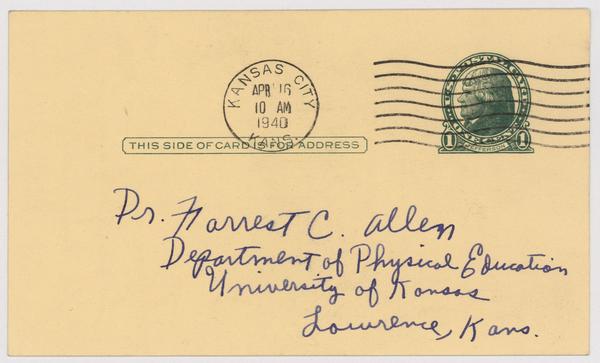 KANSAS CITY
APR 16
10 AM
1940
KANS.
THIS SIDE OF CARD IS FOR ADDRESS
1 JEFFERSON 1
Dr. Forrest C. Allen
Department of Physical Education
University of Kansas
Lawrence, Kans.